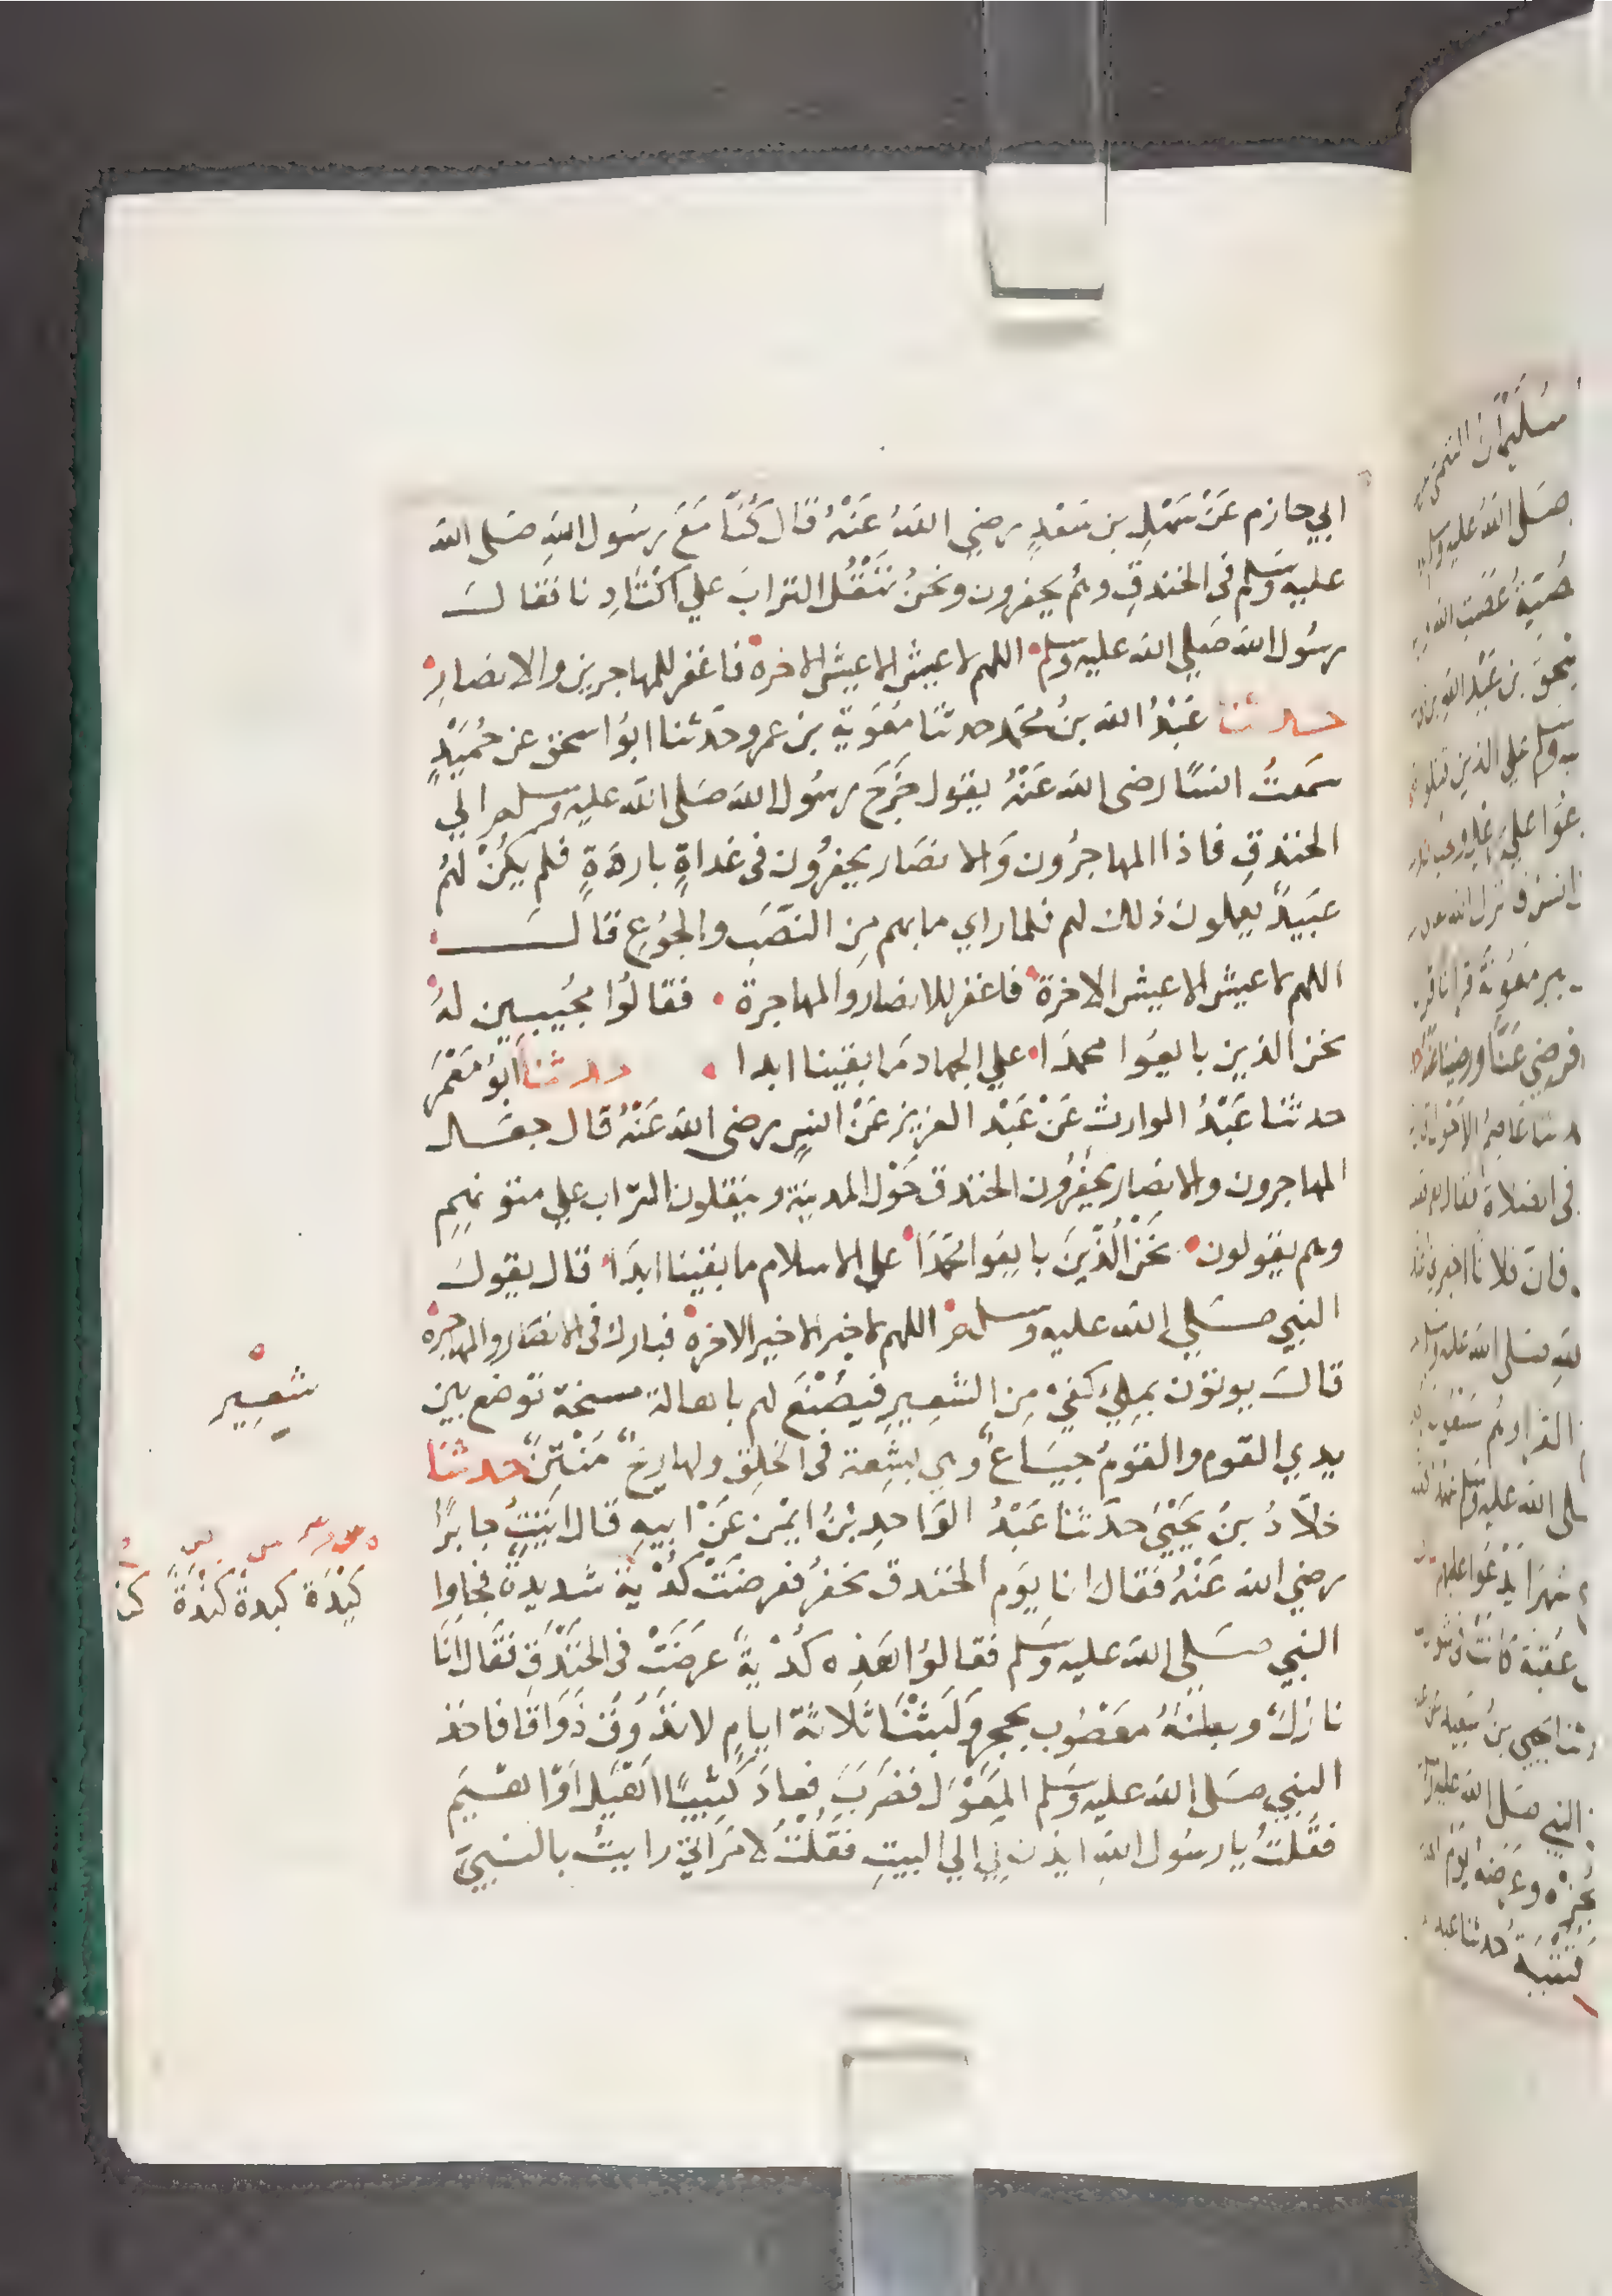 ابي حازم عَنْ سَهْلِ بن سَعْدٍ رضي الله عَنْهُ قال كُنَّا مَعَ رسُول اللهِ صَلى الله
عليه وسَلم في الخندقِ وهُم يحفرون ونحنُ نَنْقُلُ الترابَ علي اكْتادِنا فقالَ
رسُول الله صَلي الله عليه وسلم اللهم لا عيشَ الا عيشُ الاخره فاغفر للمهاجرين والانصارِ
حدثنا عَبْدُ الله بنُ محمد حدثنا مَعُويَة بن عمرو حدَثنا ابوُ اسحق عن حُمَيْدٍ
سَمعتُ انسًا رضى الله عَنْهُ يقول خَرَجَ رسُول الله صَلى الله عليه وسلم الي
الخندقِ فاذا المهاجرُون وَالانصَار يحفرُون في غداةٍ باردَةٍ فلم يكُنْ لهُم
عَبَيدٌ يعملون ذلك لهم فلما راي ما بهم مِن النَّصَبِ والجوُعِ قالَ
اللهم لا عيش الا عيش الاخرة فاغفر للانصار والمهاجرة فقالوُا مجُيبين لهُ
نحن الذين بايعوُا محمدَا علي الجهاد مَا بقينا ابدا حدثنا ابُو مَعْمَر
حدثنا عَبْدُ الوارثِ عَنْ عَبْد العزيز عَنْ انسٍ رضي الله عَنْهُ قال جعَل
المهاجرون والانصار يحْفِرُون الخندق حَوْل المدينة وينقلون التراب علي متونهِم
وهم يقولون نحَنُ الَّذَيْنَ بايعُوا محَمَّدَا علي الاسلام ما بقينا ابدَا قال يقول
النبي صَلي الله عليه وسلم اللهم لا خير الا خير الاخره فبارك في الانصار والمهاجره
قال يوتون بملئ كفي مِن الشعِيرِ فيصُنْعَ لهم باهالة سنخة توضع بين
يدي القوم والقومُ جيَاعٌ وهي بشِعة في الحَلِق ولها رِيحٌ مُنْتِنٌ حدثنا
خلاّدُ بنُ يحَيَي حدَثنا عَبْدُ الوَاحدِ بنُ ايْمن عَنْ ابيهِ قال اتيْتُ جابرًا
رضي الله عَنْهُ فقال انا يوَم الخندق نحفرُ فعرضَتْ كُدْيةٌ شديدة فجاوا
النبي صَلي الله عليه وسَلم فقالوُا هَذِه كُدْيةٌ عرضَتْ في الخنَدَقِ فقَال اَنَا
نازلٌ وبطنُهُ معَصُوب بحجرٍ ولَبَثْنَا ثلاثة ايامٍ لا نذَوقُ ذَوَاقًا فاخذ
النبي صَلي الله عليه وسَلم المِعَوْلَ فضَربَ فعادَ كثيبًا اهْيَلَ اوْ اهْيَم
فقُلتُ يا رسُول اللهِ ايذن لي الي البيتِ فقُلْتُ لامرَاتي رايتُ بالنبي
شعِيْير
كَيْدَة كبدة كَنْدَةٌ